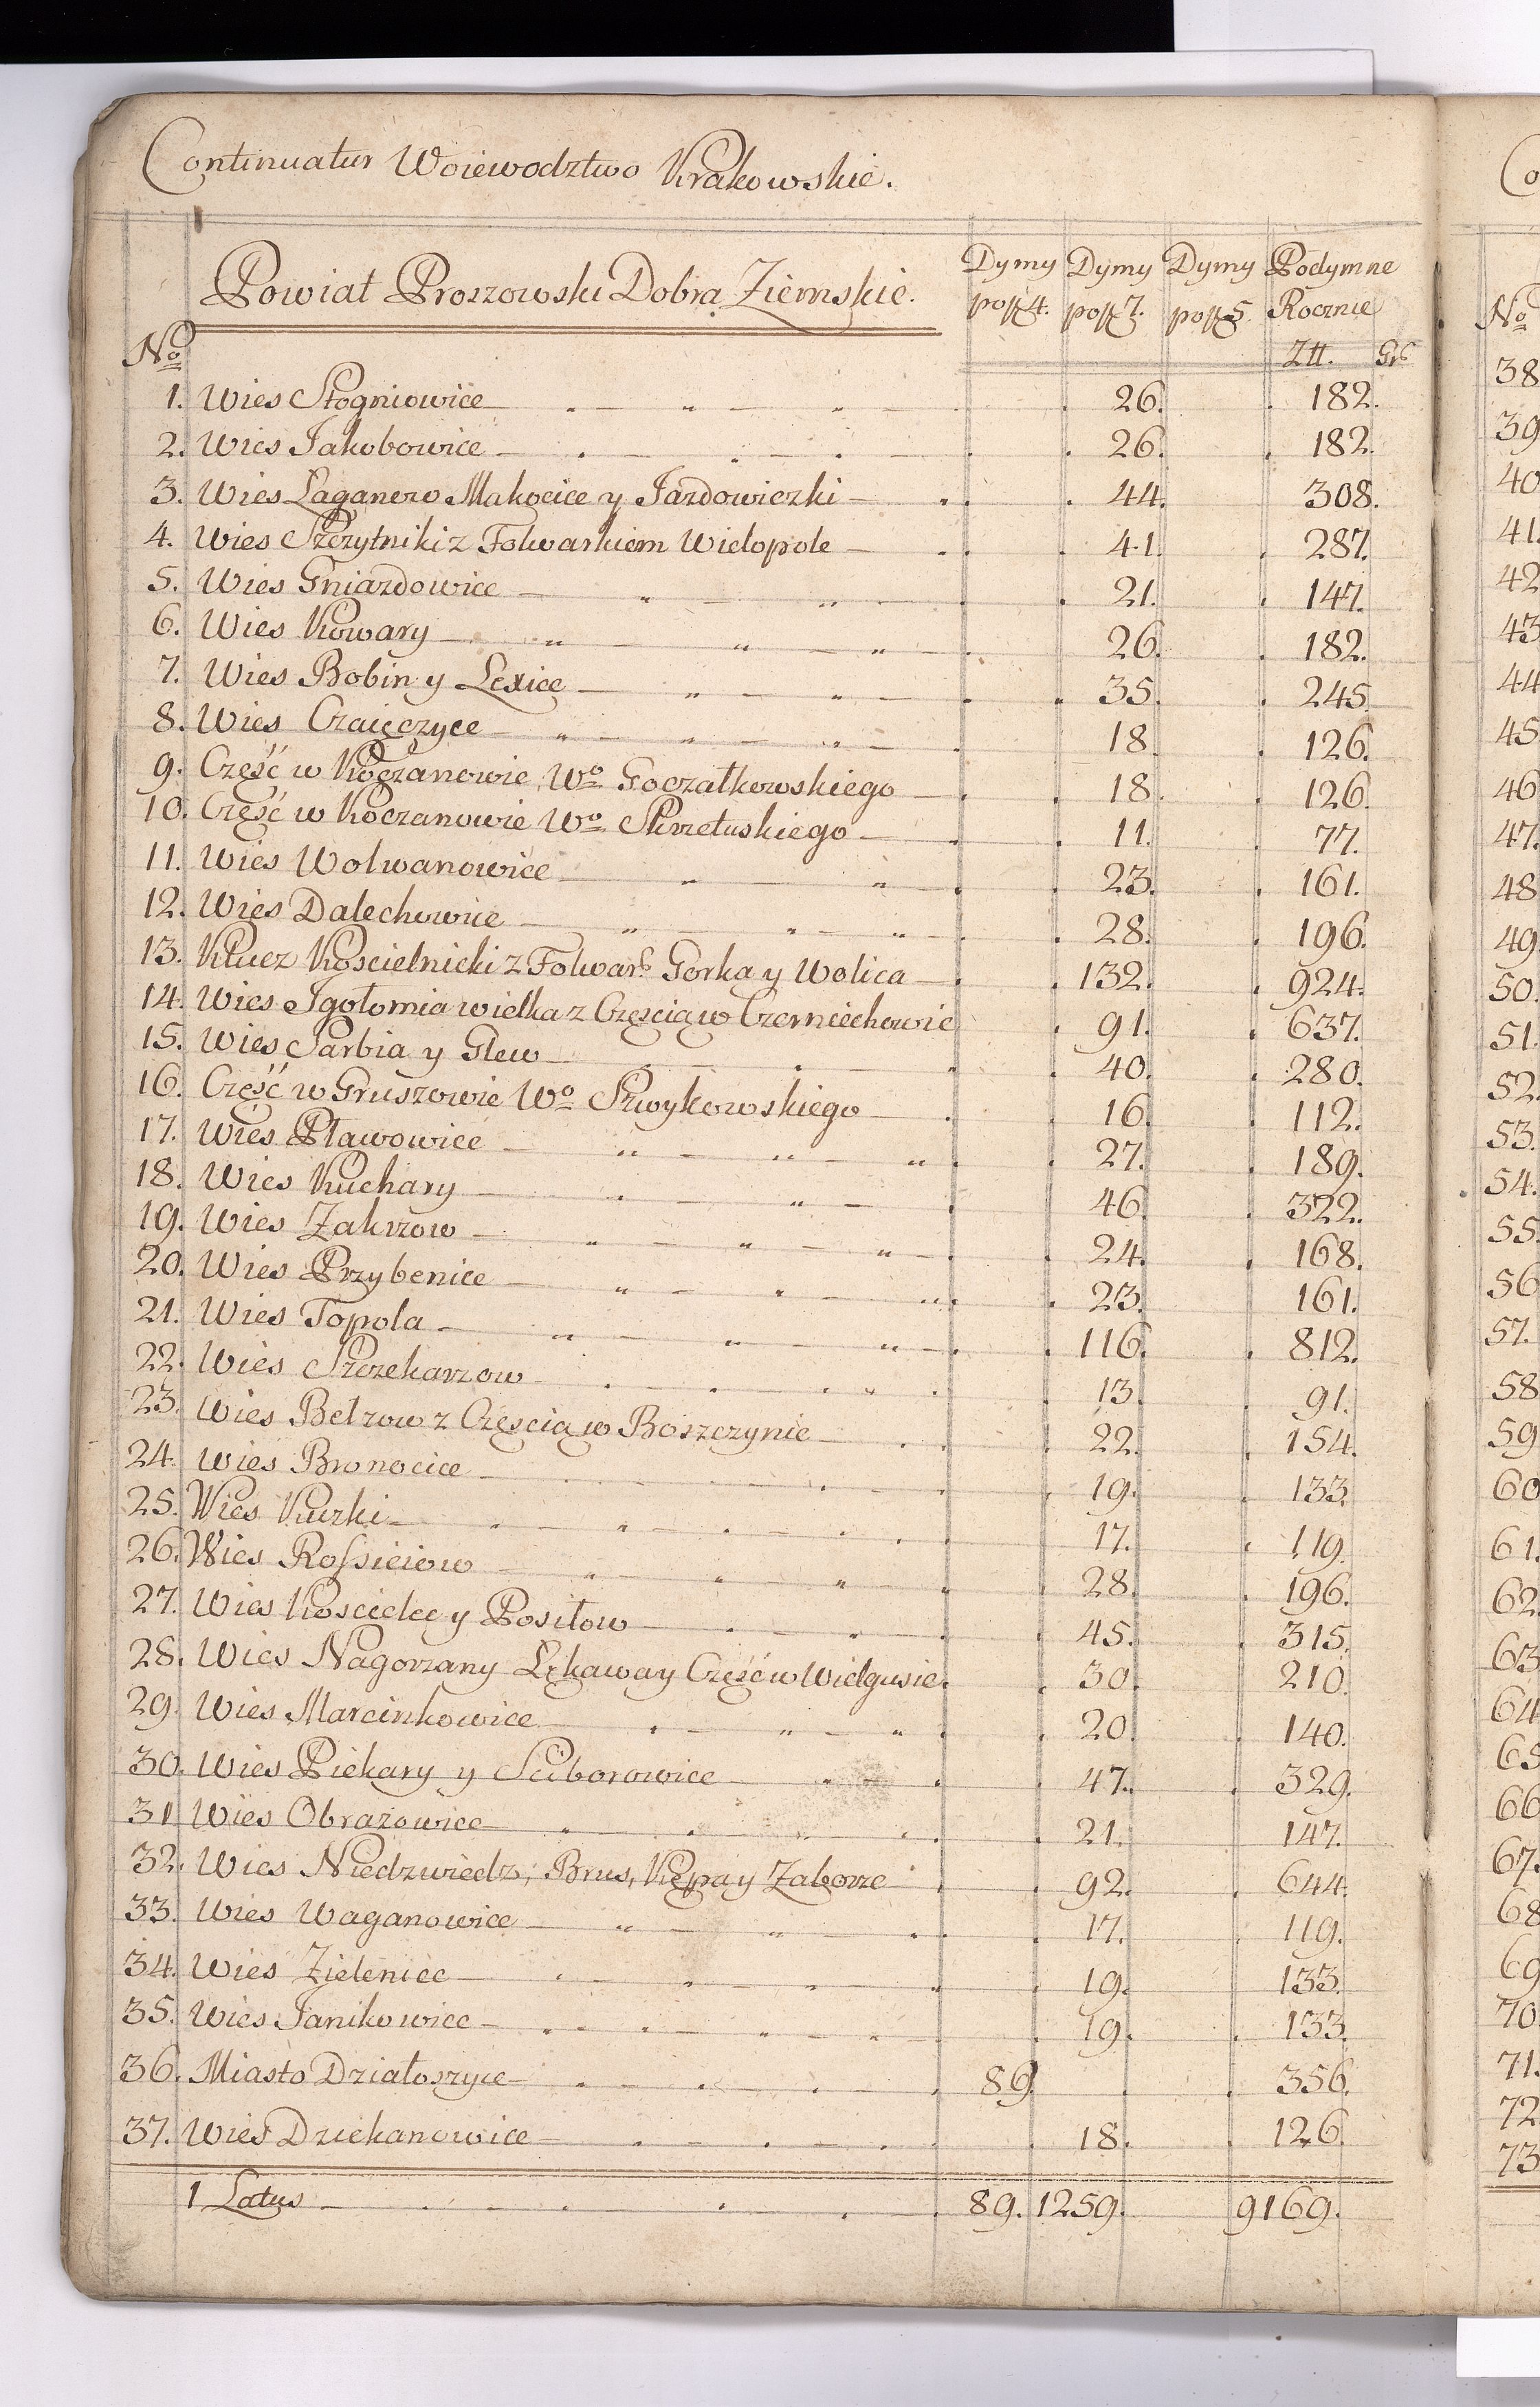 Continuatur Woiewodztwo Krakowskie.
Powiat Proszowski Dobra Ziemskie. Dymy po fl 4. Dymy po fl 7. Dymy po fl 5. Podymne Rocznie
No Ztt. Grs
1. Wies Stogniowice 26. 182.
2. Wies Jakobowice 26. 182.
3. Wies Łaganow Makocice y Jazdowiczki 44. 308.
4. Wies Szczytniki z Folwarkiem Wielopole 41. 287.
5. Wies Gniazdowice 21. 147.
6. Wies Kowary 26. 182.
7. Wies Bobin y Lexice 35. 245.
8. Wies Czaięczyce 18. 126.
9. Część w Koczanowie Wo Goczałkowskiego 18. 126.
10. Część w Koczanowie Wo Skrzetuskiego 11. 77.
11. Wies Wolwanowice 23. 161.
12. Wies Dalechowice 28. 196.
13. Klucz Koscielnicki z Folwar: Gorka y Wolica 132. 924.
14. Wies Jgołomia wielka z Częscią w Czerniechowie 91. 637.
15. Wies Sarbia y Glew 40. 280.
16. Część w Gruszowie Wo Szwykowskiego 16. 112.
17. Wies Pławowice 27. 189.
18. Wies Kuchary 46. 322.
19. Wies Zakrzow 24. 168.
20. Wies Przybenice 23. 161.
21. Wies Topola 116. 812.
22. Wies Szczekarzow 13. 91.
23. Wies Betrzow z Częscią w Boszczynie 22. 154.
24. Wies Bronocice 19. 133.
25. Wies Kuzki 17. 119.
26. Wies Rossieiow 28. 196.
27. Wies Koscielec y Posiłow 45. 315.
28. Wies Nagorzany Łękawa y Część w Wielgusie 30. 210.
29. Wies Marcinkowice 20. 140.
30. Wies Piekary y Sciborowice 47. 329.
31. Wies Obrażowice 21. 147.
32. Wies Niedzwiedz, Brus, Kępa y Zaborze 92. 644.
33. Wies Waganowice 17. 119.
34. Wies Zielenice 19. 133.
35. Wies Janikowice 19. 133.
36. Miasto Działoszyce 89. 356.
37. Wies Dziekanowice 18. 126.
1 Latus 89. 1259. 9169.
No
38
39
40
41.
42
43
44
45
46
47.
48
49
50.
51.
52.
53.
54.
55.
56
57.
58
59
60
61.
62.
63
64
65
66
67.
68
69
70.
71.
72
73